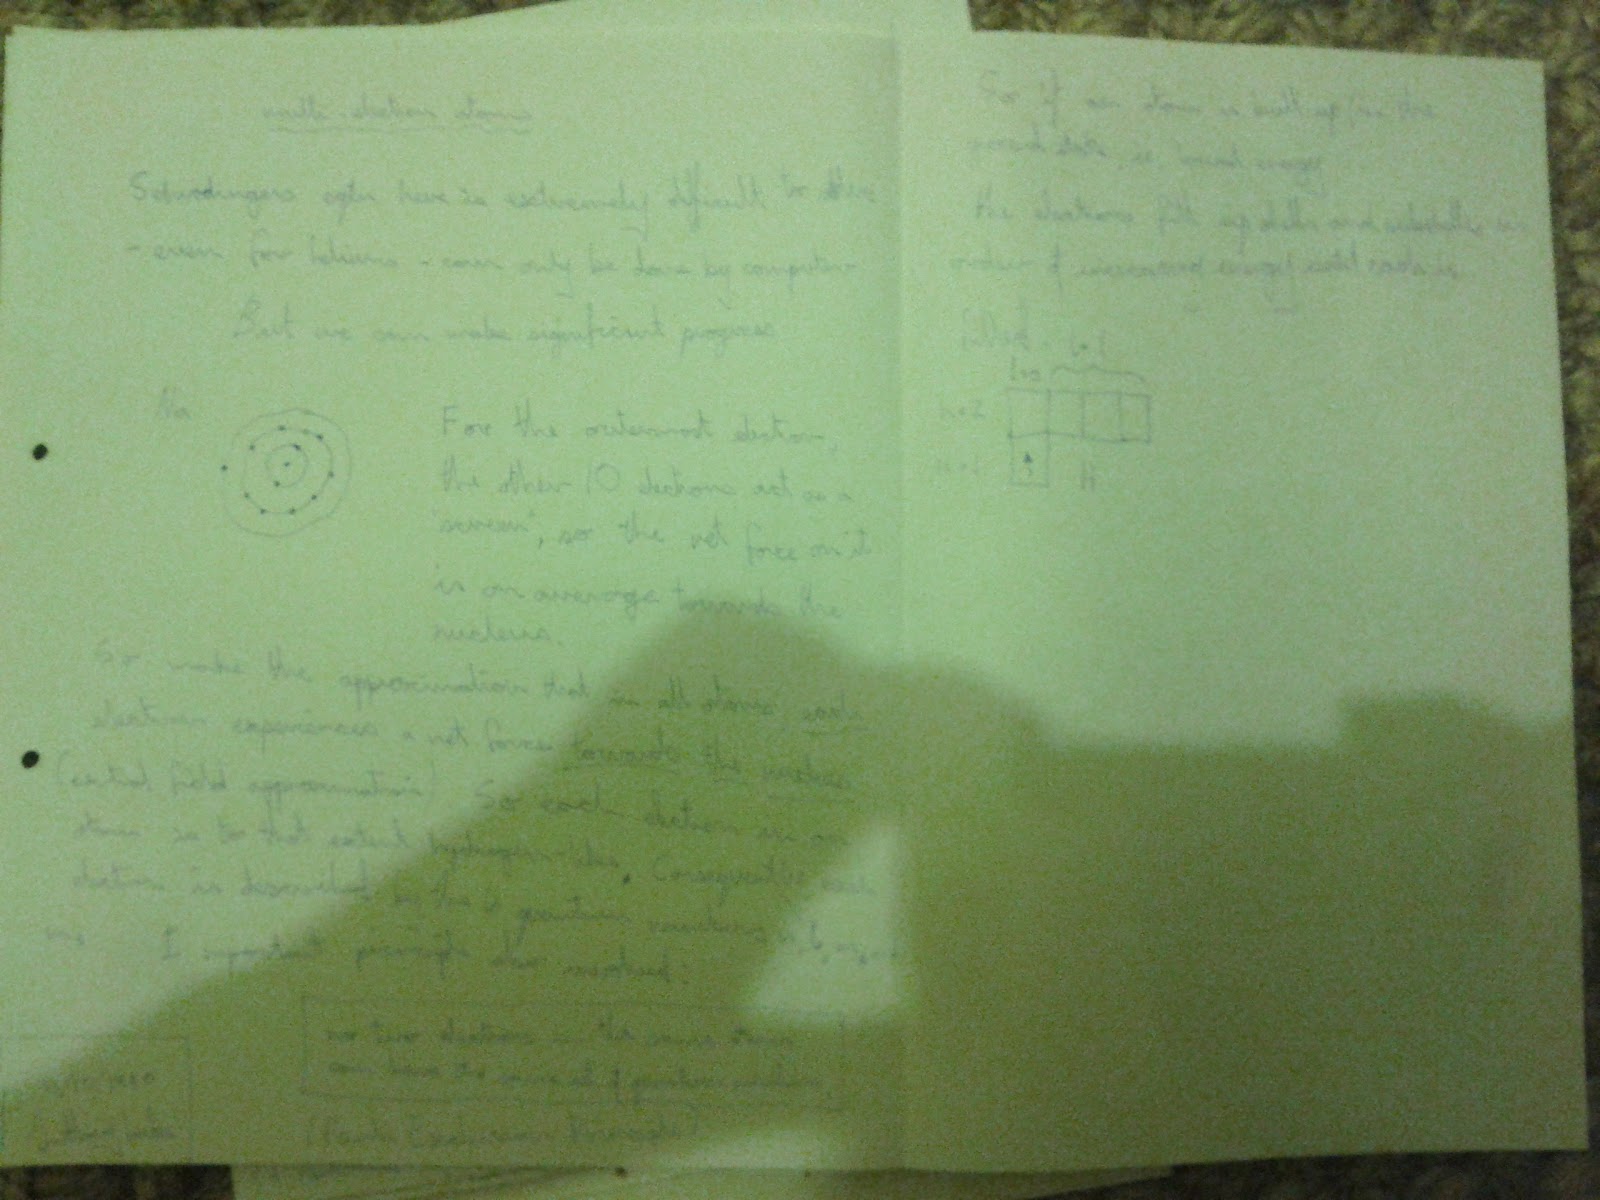 multi-electron atoms
Schrodingers eqtn here is extremely difficult to
- even for helium - can only be done by computer
But we can make significant progress
Na
For the outermost electron,
the other 10 electrons act as a
"screen", so the net force on it
is on average towards the
nucleus.
So make the approximation that in all atoms, each
electron experiences a net force towards the nucleus
(central field approximation) So each electron in an
atom is to that extent hydrogen-like. Consequently each
electron is described by the 4 quantum numbers n, l,
ms
important principle also involved:
no two electrons in the same atom
can have the same set of quantum numbers
(Pauli Exclusion Principle)
So if an atom is built up in the
state, ie. lowest energy
the electrons fill up shells and subshells in
order of increased energy until each is
filled.
l=1
l=0
n=2
n=1
H